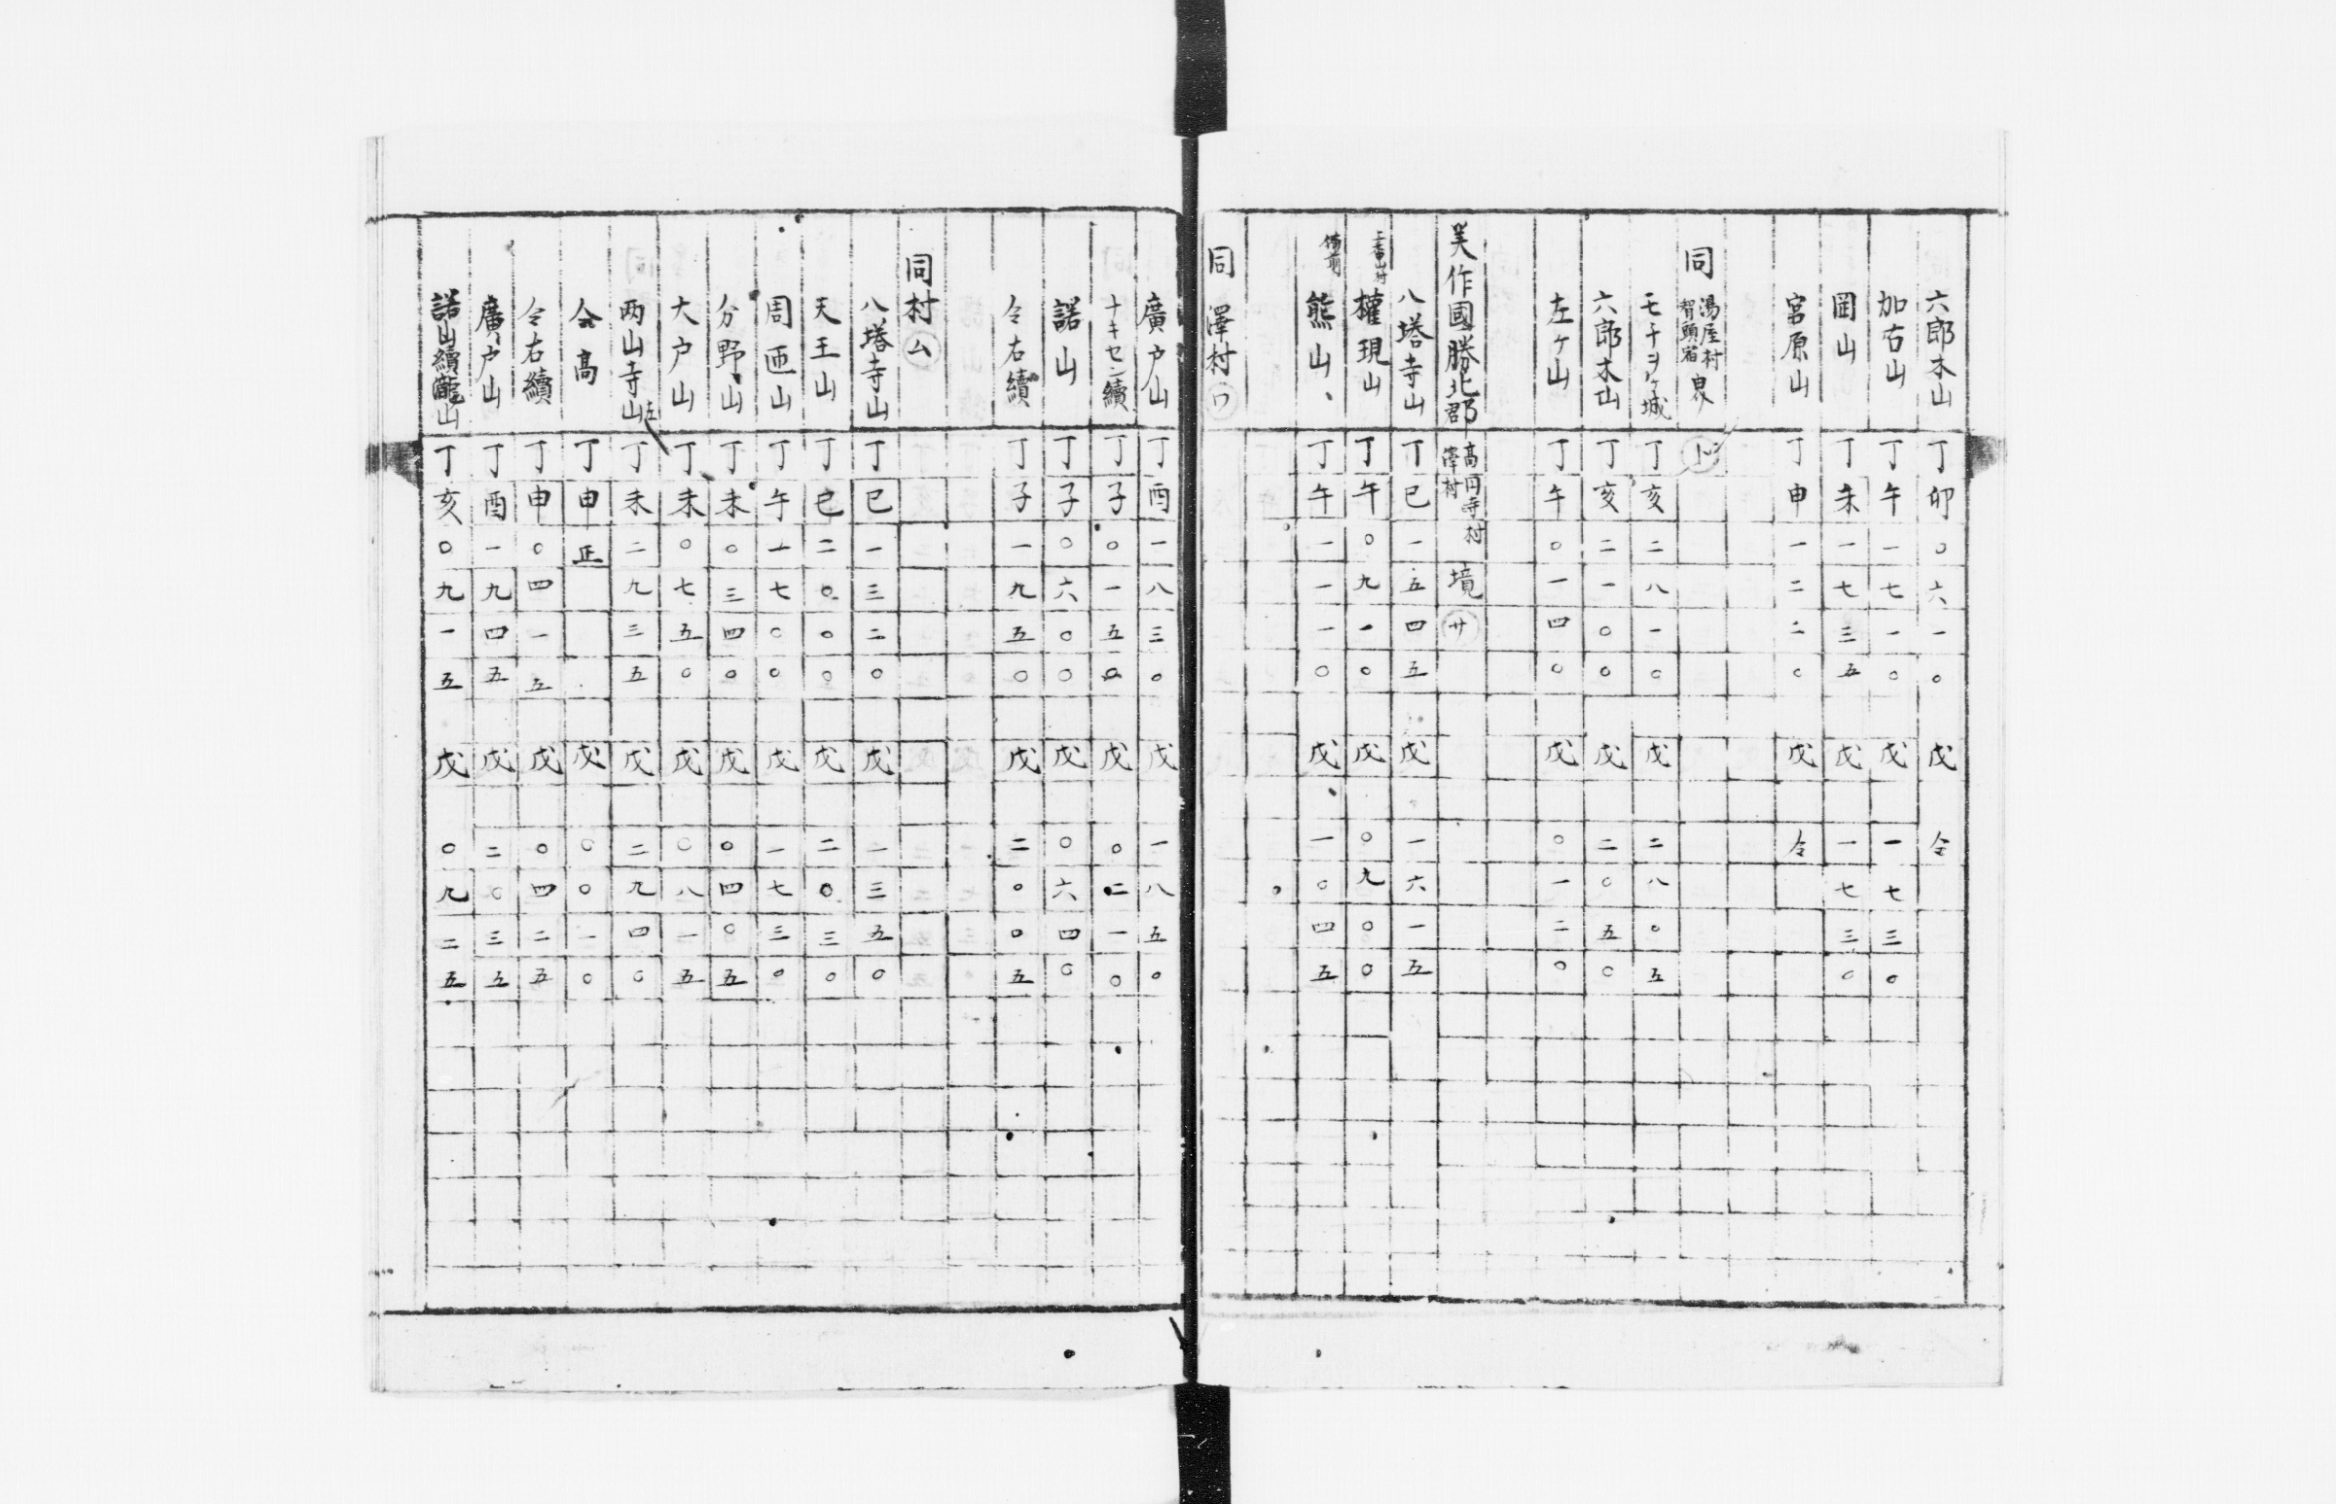 六郎木山 丁卯〇六一〇 戊 仝
加右山 丁午一七一〇 戊 一七三〇
岡山 丁未一七三五 戊 一七三〇
宮原山 丁申一二二〇 戊 仝
同 湯屋村 智頭宿 界 ㋣
モチヲヶ城 丁亥二八一〇 戊 二八〇五
六郎木山 丁亥二一〇〇 戊 二〇五〇
左ヶ山 丁午〇一四〇 戊 〇一二〇
美作國勝北郡 高円寺村 澤村 境 ㋚
八塔寺山 丁巳一五四五 戊 一六一五
權現山 丁午〇九一〇 戊 〇九〇〇
備前 熊山 丁午一一一〇 戊 一〇四五
同 澤村 ㋻
廣户山 丁酉一八三〇 戊 一八五〇
ナキセン續 丁子〇一五〇 戊 〇二一〇
諾山 丁子〇六〇〇 戊 〇六四〇
仝右續 丁子一九五〇 戊 二〇〇五
同村 ㋰
八塔寺山 丁巳一三二〇 戊 一三五〇
天王山 丁巳二〇〇〇 戊 二〇三〇
周匝山 丁午一七〇〇 戊 一七三〇
分野山 丁未〇三四〇 戊 〇四〇五
大户山 丁未〇七五〇 戊 〇八一五
两山寺山左 丁未二九三五 戊 二九四〇
仝高 丁申正 戊 〇〇一〇
仝右續 丁申〇四一五 戊 〇四二五
廣户山 丁酉一九四五 戊 二〇三五
諾山續瀧山 丁亥〇九一五 戊 〇九二五